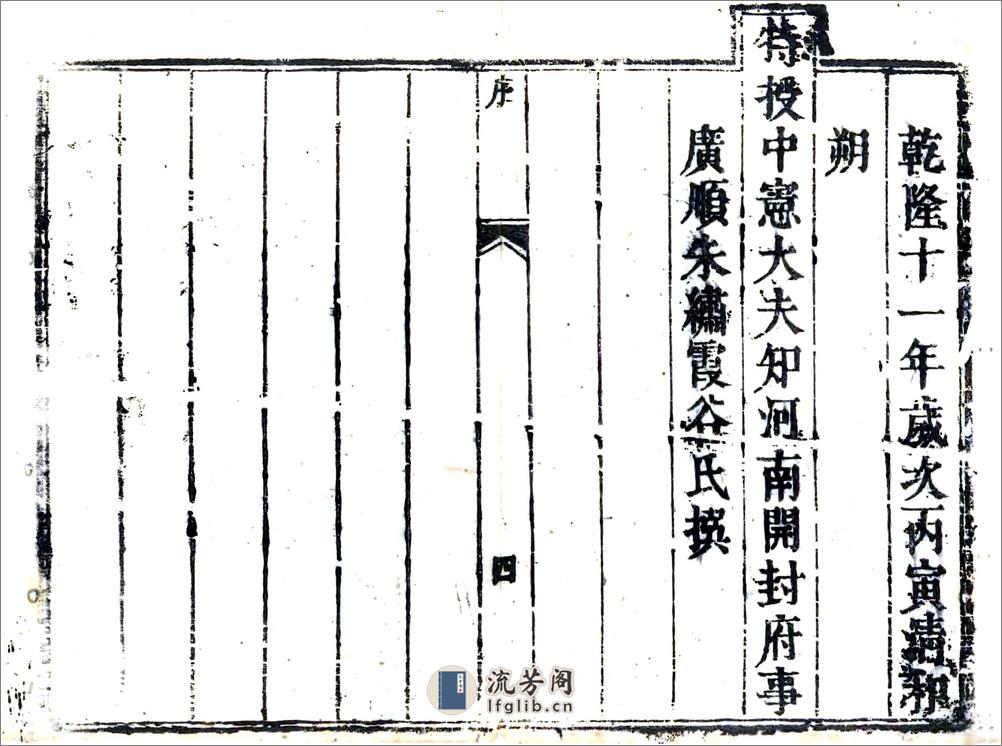 乾隆十一年歲次丙寅清和
朔
特授中憲大夫知河南開封府事
廣順朱繡霞谷氏撰
序
四
流芳阁
lfglib.cn